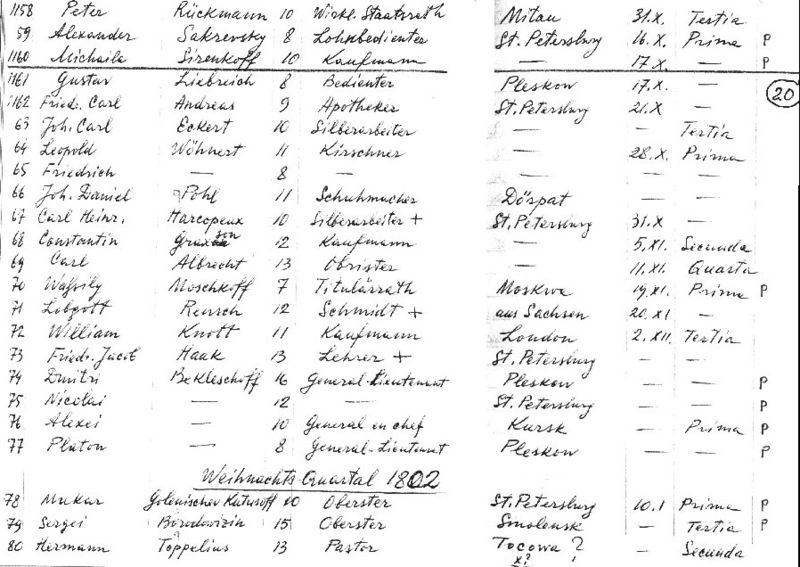 1158 Peter Rückmann 10 Wirkl. Staatsrath Mitau 31.X. Tertia
59 Alexander Sakrevsky 8 Lohnbedienter St. Petersburg 16.X. Prima P
1160 Michaila Sirenkoff 10 Kaufmann — 17.X. — P
1161 Gustav Liebreich 8 Bedienter Pleskow 17.X. — 20
1162 Friedr. Carl Andreas 9 Apotheker St. Petersburg 21.X —
63 Joh. Carl Eckert 10 Silberarbeiter — — Tertia
64 Leopold Wöhnert 11 Kirschner — 28.X. Prima
65 Friedrich — 8 — — — —
66 Joh. Daniel Pohl 11 Schuhmacher Dörpat — —
67 Carl Heinr. Harcopeux 10 Silberarbeiter + St. Petersburg 31.X —
68 Constantin 12 Kaufmann — 5.XI. Secunda
69 Carl Albrecht 13 Obrister — 11.XI. Quarta
70 Waſsily Moschkoff 7 Titulärrath Moskwa 19.XI. Prima P
71 Lobgott Reusch 12 Schmidt + aus Sachsen 20.XI —
72 William Knott 11 Kaufmann London 2.XII. Tertia
73 Friedr. Jacob Haak 13 Lehrer + St. Petersburg — —
74 Dmitri Bekleschoff 16 General-Lieutenant Pleskow — — P
75 Nicolai — 12 — St. Petersburg — — P
76 Alexei — 10 General en chef Kursk — Prima P
77 Platon — 8 General-Lieutenant Pleskow — — P
Weihnachts-Quartal 1802
78 Mukar Golenischev Kutusoff 10 Oberster St. Petersburg 10.1 Prima P
79 Sergei Borodovizin 15 Oberster Smolensk — Tertia P
80 Hermann Toppelius 13 Pastor Tocowa ? — Secunda
x?